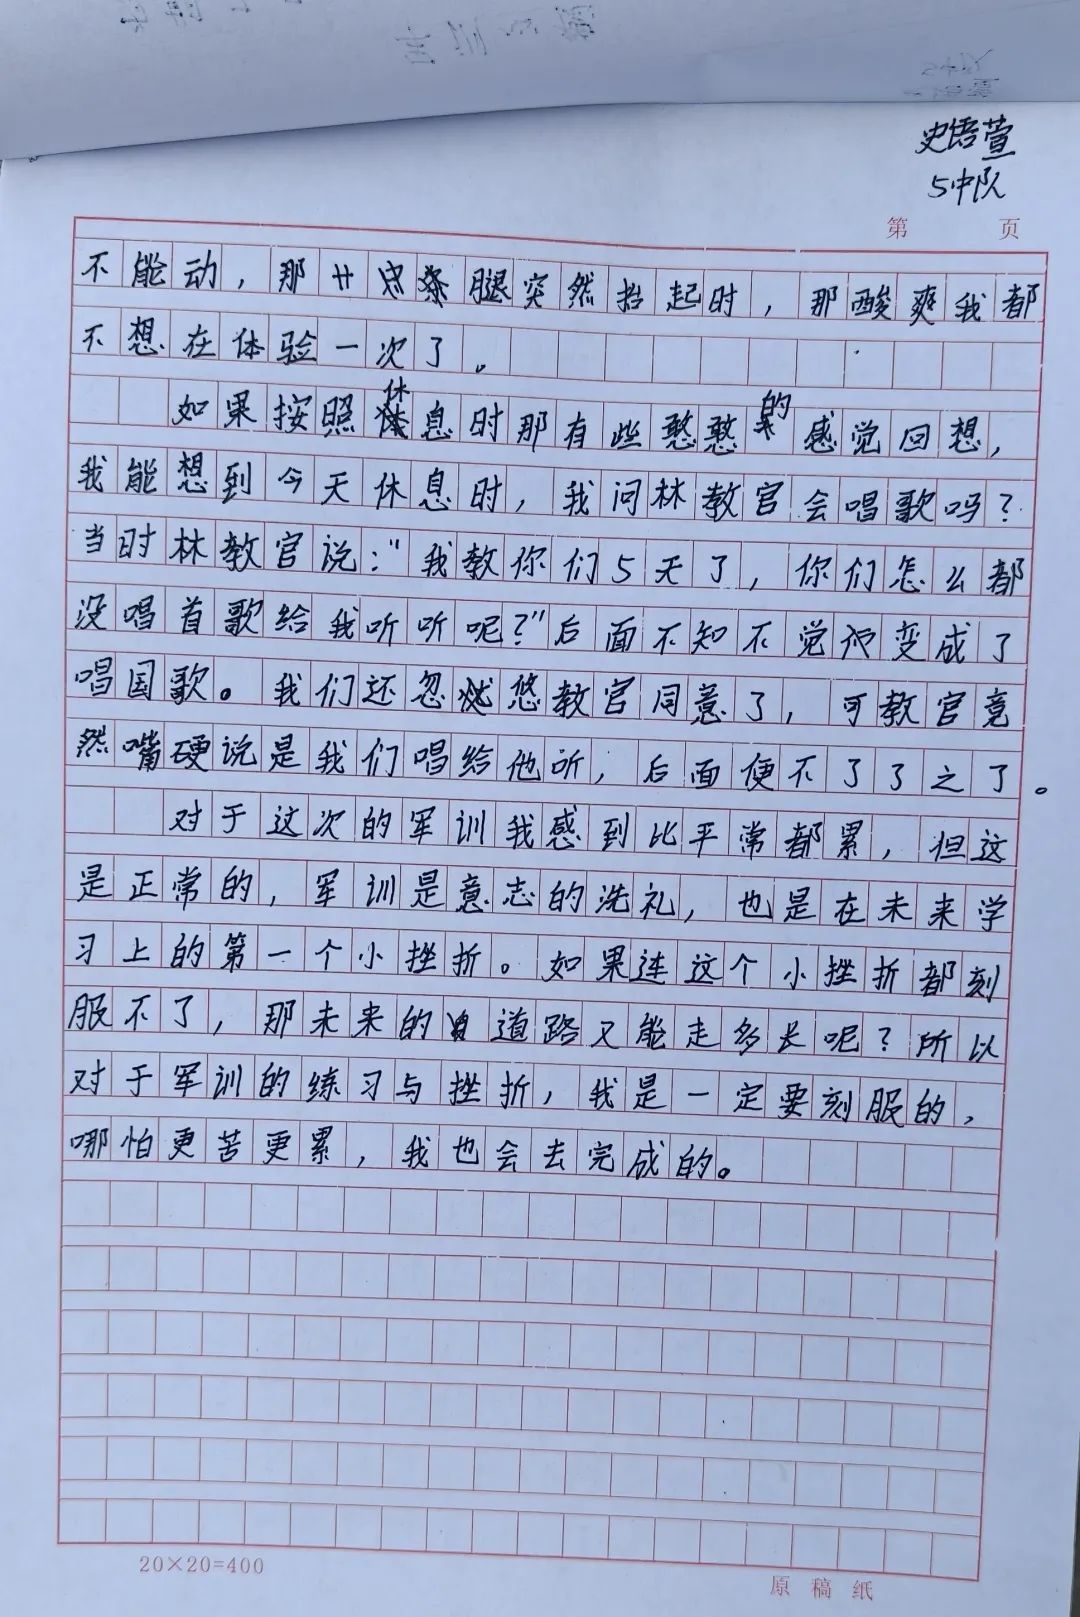 史语萱
5中队
第 页
不能动，那腿突然抬起时，那酸爽我都
不想在体验一次了。
如果按照休息时那有些憨憨的感觉回想，
我能想到今天休息时，我问林教官会唱歌吗？
当时林教官说：“我教你们5天了，你们怎么都
没唱首歌给我听听呢？”后面不知不觉变成了
唱国歌。我们还忽悠教官同意了，可教官竟
然嘴硬说是我们唱给他听，后面便不了了之了。
对于这次的军训我感到比平常都累，但这
是正常的，军训是意志的洗礼，也是在未来学
习上的第一个小挫折。如果连这个小挫折都刻
服不了，那未来的道路又能走多长呢？所以
对于军训的练习与挫折，我是一定要刻服的，
哪怕更苦更累，我也会去完成的。
20×20=400
原稿纸